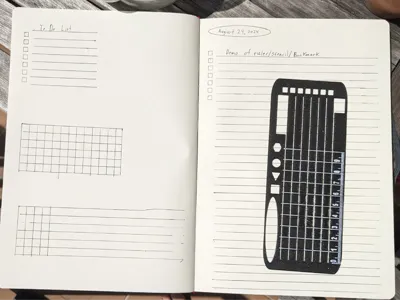 To Do List
August 29, 2015
Demo of ruler/stencil/Bookmark